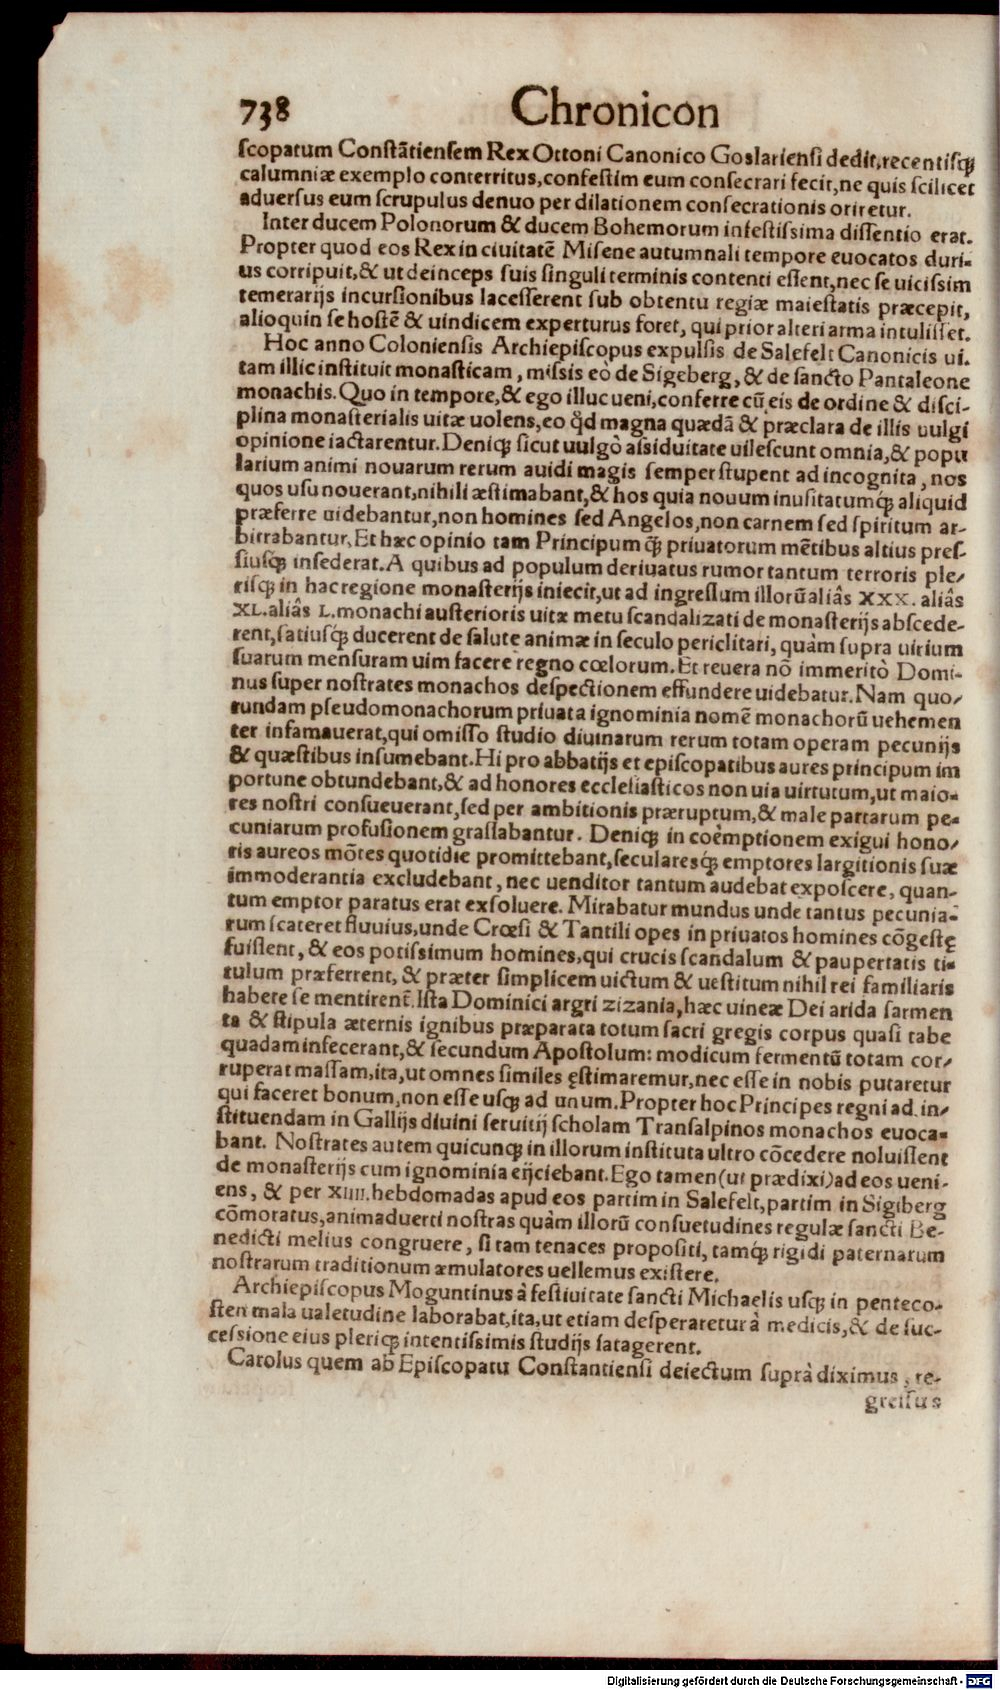 738 Chronicon
scopatum Constãtiensem Rex Ottoni Canonico Goslariensi dedit, recentisq́;
calumniæ exemplo conterritus, confestim eum consecrari fecit, ne quis scilicet
aduersus eum scrupulus denuo per dilationem consecrationis oriretur.
Inter ducem Polonorum & ducem Bohemorum infestissima dissentio erat.
Propter quod eos Rex in ciuitatẽ Misene autumnali tempore euocatos duri-
us corripuit, & ut deinceps suis singuli terminis contenti essent, nec se uicissim
temerarijs incursionibus lacesserent sub obtentu regiæ maiestatis præcepit,
alioquin se hostẽ & uindicem experturus foret, qui prior alteri arma intulisset.
Hoc anno Coloniensis Archiepiscopus expulsis de Salefelt Canonicis ui-
tam illic instituit monasticam, missis eò de Sigeberg, & de sancto Pantaleone
monachis. Quo in tempore, & ego illuc ueni, conferre cũ eis de ordine & disci-
plina monasterialis uitæ uolens, eo q̃d magna quædã & præclara de illis uulgi
opinione iactarentur. Deniq; sicut uulgò assiduitate uilescunt omnia, & popu
larium animi nouarum rerum auidi magis semper stupent ad incognita, nos
quos usu nouerant, nihili æstimabant, & hos quia nouum inusitatumq́; aliquid
præferre uidebantur, non homines sed Angelos, non carnem sed spiritum ar-
bitrabantur. Et hæc opinio tam Principum q̃; priuatorum mẽtibus altius pres-
siusq́; insederat. A quibus ad populum deriuatus rumor tantum terroris ple-
risq; in hac regione monasterijs iniecit, ut ad ingressum illorũ aliâs XXX. aliâs
XL. aliâs L. monachi austerioris uitæ metu scandalizati de monasterijs abscede-
rent, satiusq́; ducerent de salute animæ in seculo periclitari, quàm supra uirium
suarum mensuram uim facere regno cœlorum. Et reuera nõ immeritò Domi-
nus super nostrates monachos despectionem effundere uidebatur. Nam quo-
rundam pseudomonachorum priuata ignominia nomẽ monachorũ uehemen
ter infamauerat, qui omisso studio diuinarum rerum totam operam pecunijs
& quæstibus insumebant. Hi pro abbatijs et episcopatibus aures principum im
portune obtundebant, & ad honores ecclesiasticos non uia uirtutum, ut maio-
res nostri consueuerant, sed per ambitionis præruptum, & male partarum pe-
cuniarum profusionem grassabantur. Deniq; in coëmptionem exigui hono-
ris aureos mõtes quotidie promittebant, secularesq́; emptores largitionis suæ
immoderantia excludebant, nec uenditor tantum audebat exposcere, quan-
tum emptor paratus erat exsoluere. Mirabatur mundus unde tantus pecunia-
rum scateret fluuius, unde Crœsi & Tantili opes in priuatos homines cõgestę
fuissent, & eos potissimum homines, qui crucis scandalum & paupertatis ti-
tulum præferrent, & præter simplicem uictum & uestitum nihil rei familiaris
habere se mentirent̃. Ista Dominici argri zizania, hæc uineæ Dei arida sarmen
ta & stipula æternis ignibus præparata totum sacri gregis corpus quasi tabe
quadam infecerant, & secundum Apostolum: modicum fermentũ totam cor-
ruperat massam, ita, ut omnes similes ęstimaremur, nec esse in nobis putaretur
qui faceret bonum, non esse usq; ad unum. Propter hoc Principes regni ad in-
stituendam in Gallijs diuini seruitij scholam Transalpinos monachos euoca-
bant. Nostrates autem quicunq; in illorum instituta ultro cõcedere noluissent
de monasterijs cum ignominia eijciebant. Ego tamen (ut prædixi) ad eos ueni-
ens, & per XIIII. hebdomadas apud eos partim in Salefelt, partim in Sigiberg
cõmoratus, animaduerti nostras quàm illorũ consuetudines regulæ sancti Be-
nedicti melius congruere, si tam tenaces propositi, tamq́; rigidi paternarum
nostrarum traditionum æmulatores uellemus existere.
Archiepiscopus Moguntinus à festiuitate sancti Michaelis usq; in penteco-
sten mala ualetudine laborabat, ita, ut etiam desperaretur à medicis, & de suc-
cessione eius pleriq; intentissimis studijs satagerent.
Carolus quem ab Episcopatu Constantiensi deiectum suprà diximus, re-
gressus
Digitalisierung gefördert durch die Deutsche Forschungsgemeinschaft - DFG